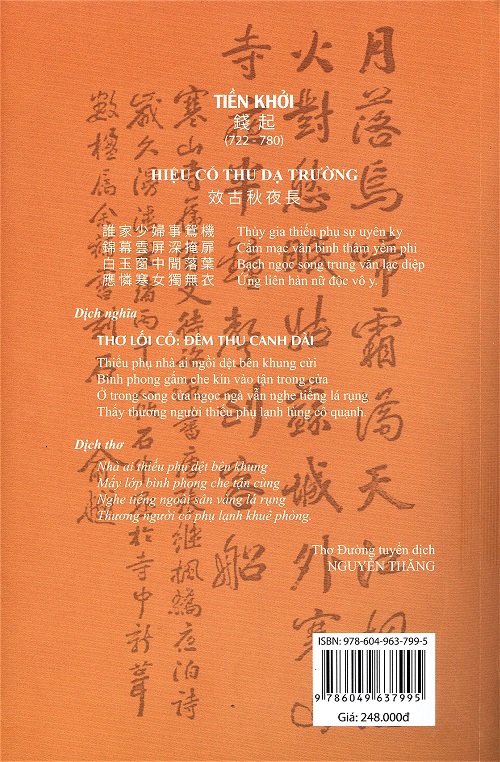 TIỀN KHỞI
錢起
(722 - 780)
HIỆU CỔ THU DẠ TRƯỜNG
效古秋夜長
誰家少婦事鴛機 Thùy gia thiếu phụ sự uyên ky
錦幕雲屏深掩扉 Cẩm mạc vân bình thâm yểm phi
白玉窗中聞落葉 Bạch ngọc song trung văn lạc diệp
應憐寒女獨無衣 Ưng liên hàn nữ độc vô y.
Dịch nghĩa
THƠ LỐI CỔ: ĐÊM THU CANH DÀI
Thiếu phụ nhà ai ngồi dệt bên khung cửi
Bình phong gấm che kín vào tận trong cửa
Ở trong song cửa ngọc ngà vẫn nghe tiếng lá rụng
Thấy thương người thiếu phụ lạnh lùng cô quạnh.
Dịch thơ
Nhà ai thiếu phụ dệt bên khung
Mấy lớp bình phong che tận cùng
Nghe tiếng ngoài sân vàng lá rụng
Thương người cô phụ lạnh khuê phòng.
Thơ Đường tuyển dịch
NGUYỄN THĂNG
ISBN: 978-604-963-799-5
9 786049 637995
Giá: 248.000đ
月落烏啼霜滿天江
火對愁眠姑蘇城外寒山
寺夜半鐘聲到客船